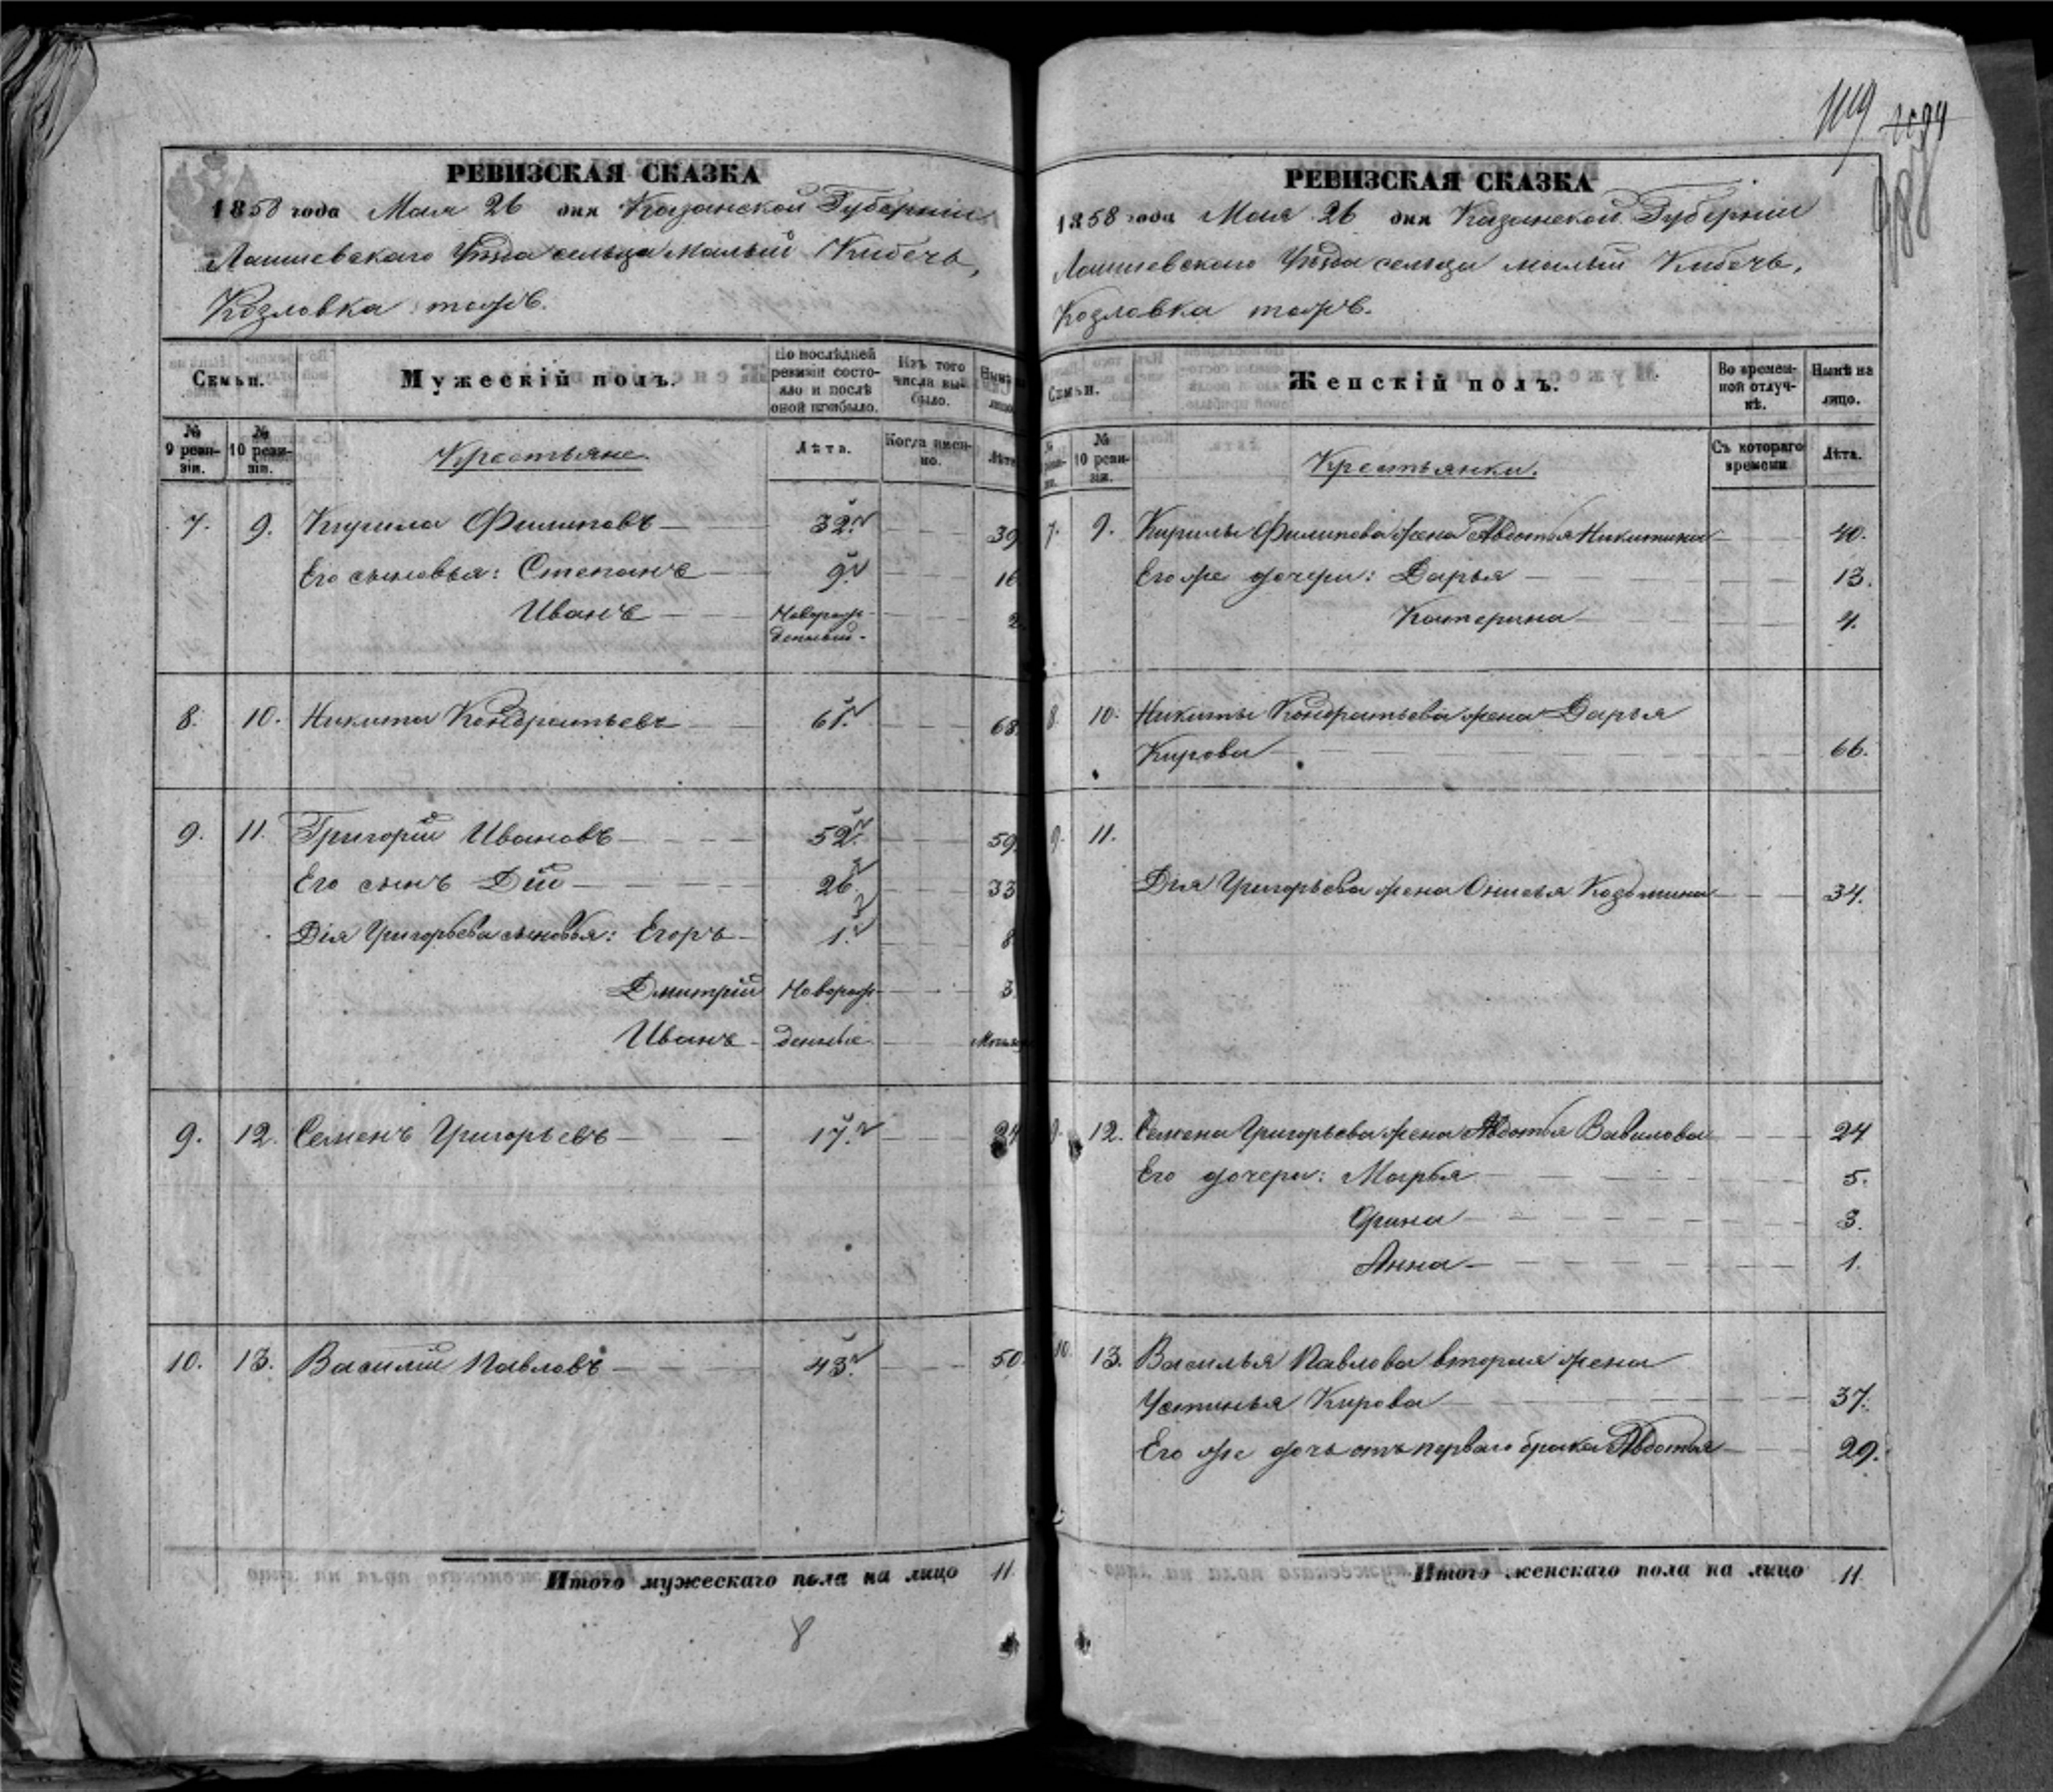 1119
1094
988
РЕВИЗСКАЯ СКАЗКА
1858 года Мая 26 дня Казанской Губернии
Лаишевскаго Уѣзда сельца малый Кибечь,
Козловка тожъ.
Семьи.
Мужескій полъ.
По послѣдней ревизіи состояло и послѣ оной прибыло.
Изъ того числа выбыло.
Нынѣ
лицо
№ 9 ревизіи.
№ 10 ревизіи.
Крестьяне.
Лѣта.
Когда именно.
Лѣта
7. 9. Кирила Филиповъ 32. 39
Его сыновья: Степанъ 9. 16
Иванъ Новорож- 2
денный.
8. 10. Никита Кондратьевъ 61. 68
9. 11. Григорій Ивановъ 52. 59
Его сынъ Дій 26. 33
Дія Григорьева сыновья: Егоръ 1. 8
Дмитрій Новорож- 3
Иванъ денные
9. 12. Семенъ Григорьевъ 17. 24
10. 13. Василій Павловъ 43. 50
Итого мужескаго пола на лицо 11
8
РЕВИЗСКАЯ СКАЗКА
1858 года Мая 26 дня Казанской Губернии
Лаишевскаго Уѣзда сельца малый Кибечь,
Козловка тожъ.
Семьи.
Женскій полъ.
Во временной отлучкѣ.
Нынѣ на лицо.
№ 10 ревизіи.
Крестьянки.
Съ котораго времени
Лѣта.
7. 9. Кирилы Филипова жена Авдотья Никитина 40.
Его же дочери: Дарья 13.
Катерина 4.
8. 10. Никиты Кондратьева жена Дарья
Кирова 66.
9. 11.
Дія Григорьева жена Онисья Козьмина 34.
9. 12. Семена Григорьева жена Авдотья Вавилова 24
Его дочери: Марья 5.
Орина 3.
Анна 1.
10. 13. Василья Павлова вторая жена
Устинья Кирова 37.
Его же дочь отъ перваго брака Авдотья 29.
Итого женскаго пола на лицо 11